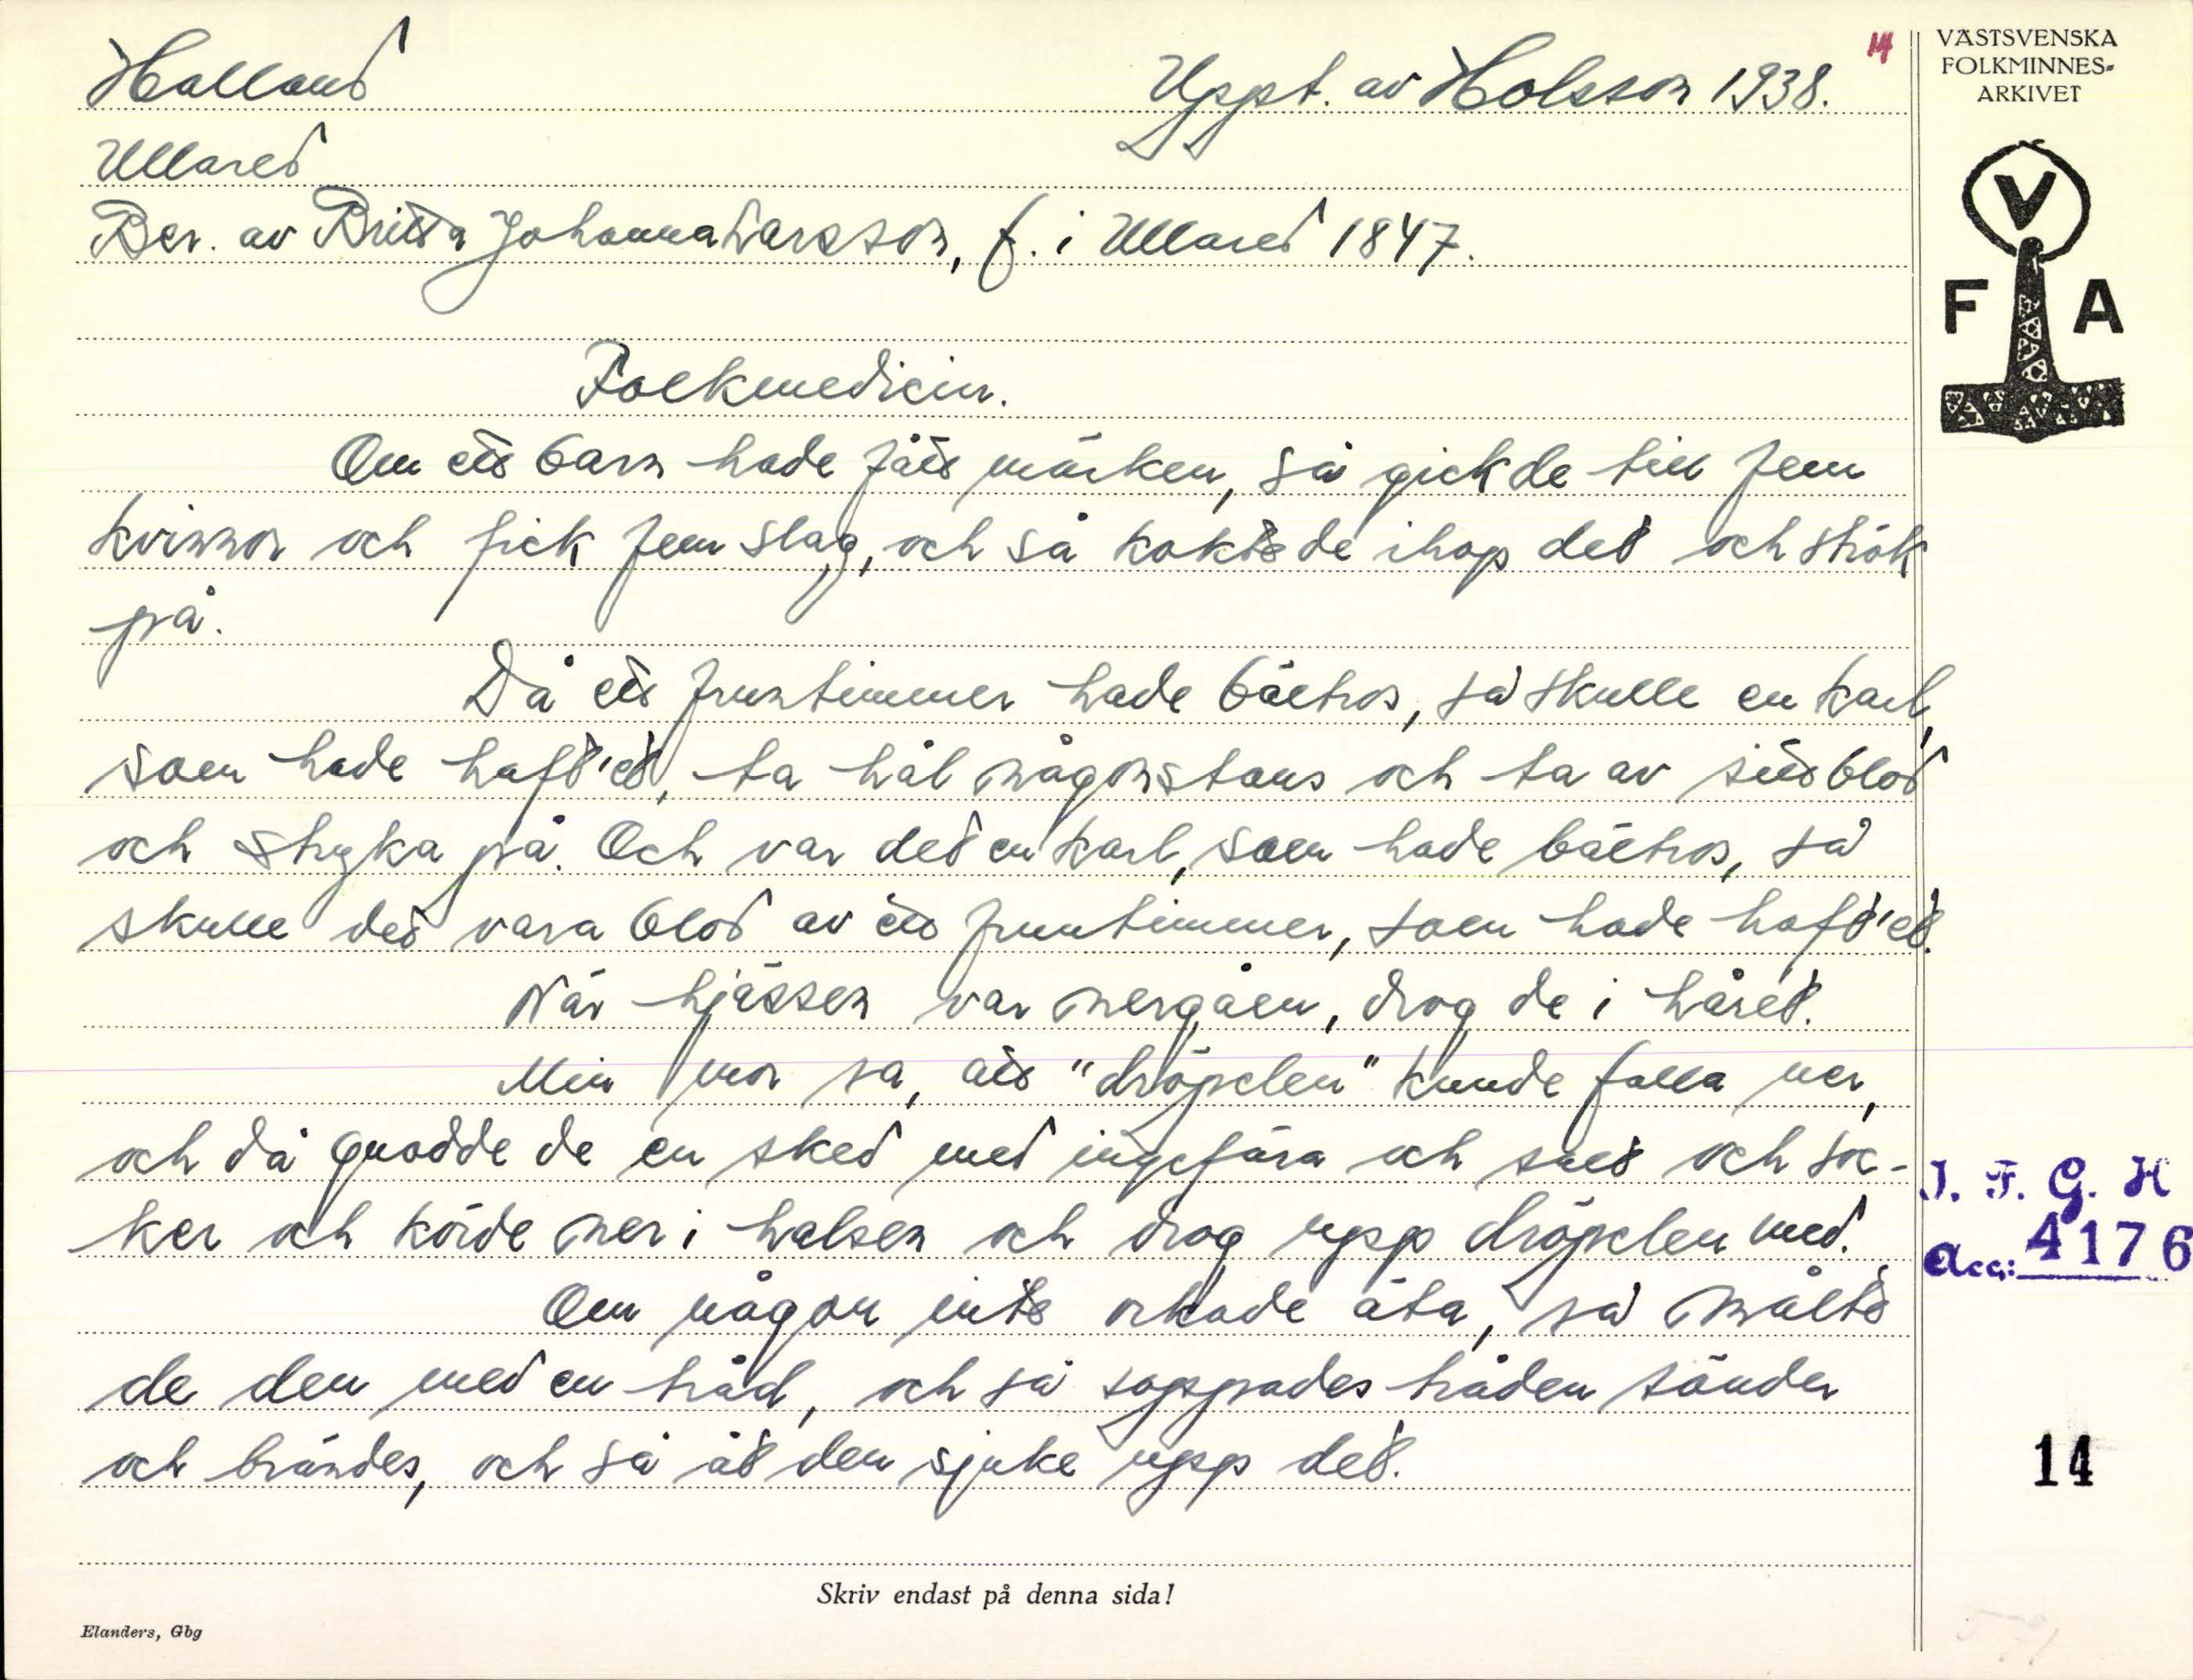 Halland
Uppt. av Holsson 1938.
14
VÄSTSVENSKA
FOLKMINNES-
ARKIVET
Ullared
Ber. av Britta Johanna Larsson, f. i Ullared 1847.
V
F A
Folkmedicin.
Om ett barn hade fått märken, så gick de till fem
kvinnor och fick fem slag, och så kokte de ihop det och strök
på.
Då ett fruntimmer hade bältros, så skulle en karl,
som hade haft'et, ta hål någonstans och ta av sitt blod
och stryka på. Och var det en karl, som hade bältros, så
skulle det vara blod av ett fruntimmer, som hade haft'et.
När hjässen var nergåen, drog de i håret.
Min mor sa, att "dröpelen" kunde falla ner,
och då gnodde de en sked med ingefära och salt och soc-
ker och körde ner i halsen och drog upp dröpelen med.
I. F. G. H
Acc: 4176
Om någon inte orkade äta, så målte
de den med en tråd, och så soppades tråden sönder
och brändes, och så åt den sjuke upp det.
14
Skriv endast på denna sida!
Elanders, Gbg